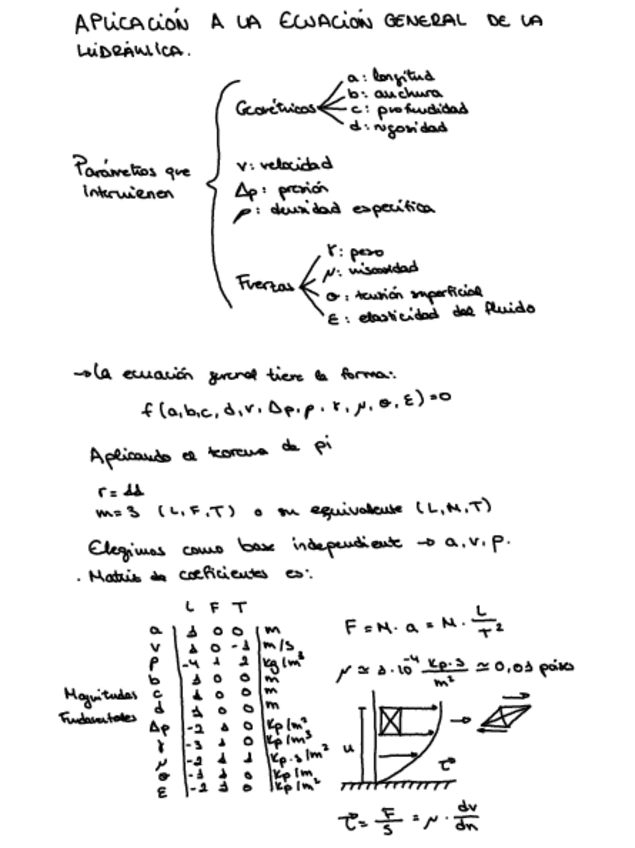 APLICACIÓN A LA ECUACIÓN GENERAL DE LA
HIDRÁULICA.
Parámetros que
intervienen
Geométricos
a: longitud
b: anchura
c: profundidad
d: rugosidad
v: velocidad
Δp: presión
ρ: densidad específica
Fuerzas
γ: peso
μ: viscosidad
σ: tensión superficial
ε: elasticidad del fluido
→ La ecuación general tiene la forma:
f (a,b,c,d,v,Δp,ρ,γ,μ,σ,ε)=0
Aplicando el teorema de pi
r= 11
m= 3 (L,F,T) o su equivalente (L,M,T)
Elegimos como base independiente → a,v,ρ.
. Matriz de coeficientes es:
L F T
a 1 0 0 m
v 1 0 -1 m/s
ρ -4 1 2 kg/m³
b 1 0 0 m
c 1 0 0 m
d 1 0 0 m
Δp -2 1 0 kp/m²
γ -3 1 0 kp/m³
μ -2 1 1 kp·s/m²
σ -1 1 0 kp/m
ε -2 1 0 kp/m²
Magnitudes
Fundamentales
F = M · a = M · L/T²
μ ≃ 1·10⁻⁴ kp·s/m² ≃ 0,01 poises
u
τ
τ = F/S = μ · dv/dn